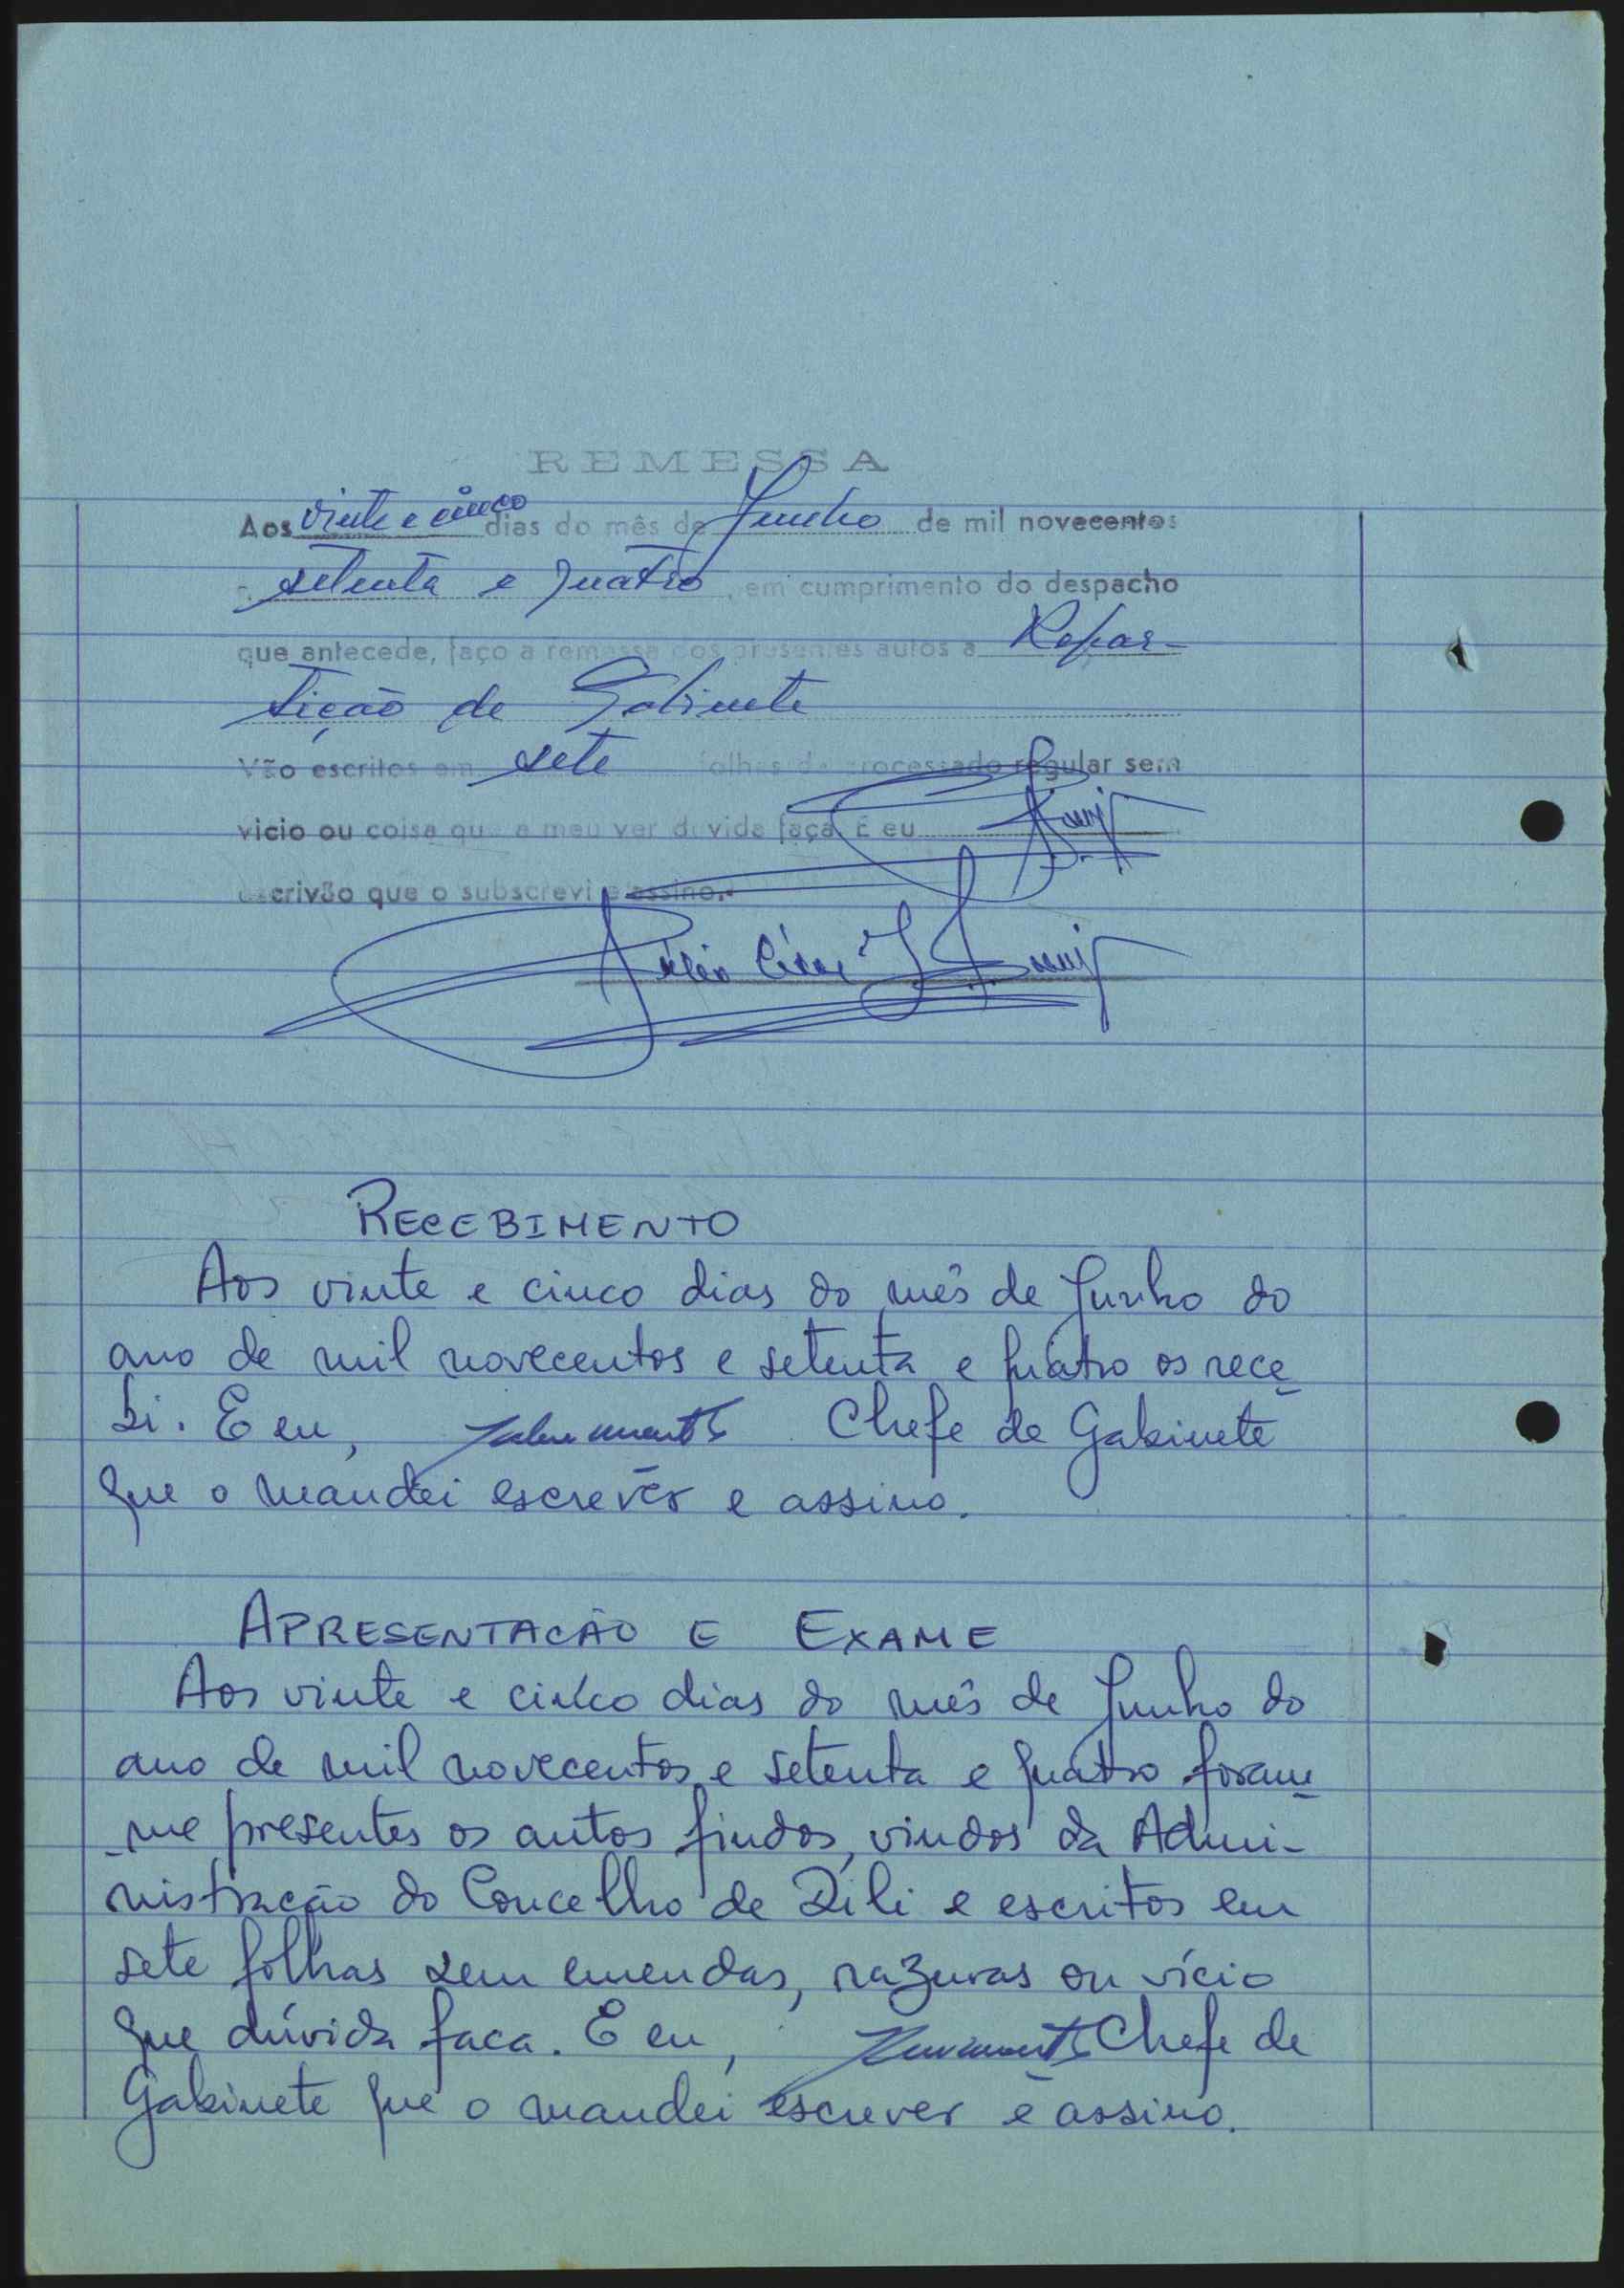 REMESSA
Aos vinte e cinco dias do mês de Junho de mil novecentos
e setenta e quatro, em cumprimento do despacho
que antecede, faço a remessa dos presentes autos a Repar-
tição de Gabinete
Vão escritos em sete folhas de processado regular sem
vicio ou coisa que a meu ver dúvida faça. E eu
escrivão que o subscrevi e assino.
Júlio César
RECEBIMENTO
Aos vinte e cinco dias do mês de Junho do
ano de mil novecentos e setenta e quatro os rece
bi. E eu, Chefe de Gabinete
que o mandei escrever e assino.
APRESENTAÇÃO E EXAME
Aos vinte e cinco dias do mês de Junho do
ano de mil novecentos e setenta e quatro foram
-me presentes os autos findos, vindos da Admi-
nistração do Concelho de Díli e escritos em
sete folhas sem emendas, razuras ou vício
que dúvida faça. E eu, Chefe de
Gabinete que o mandei escrever e assino.